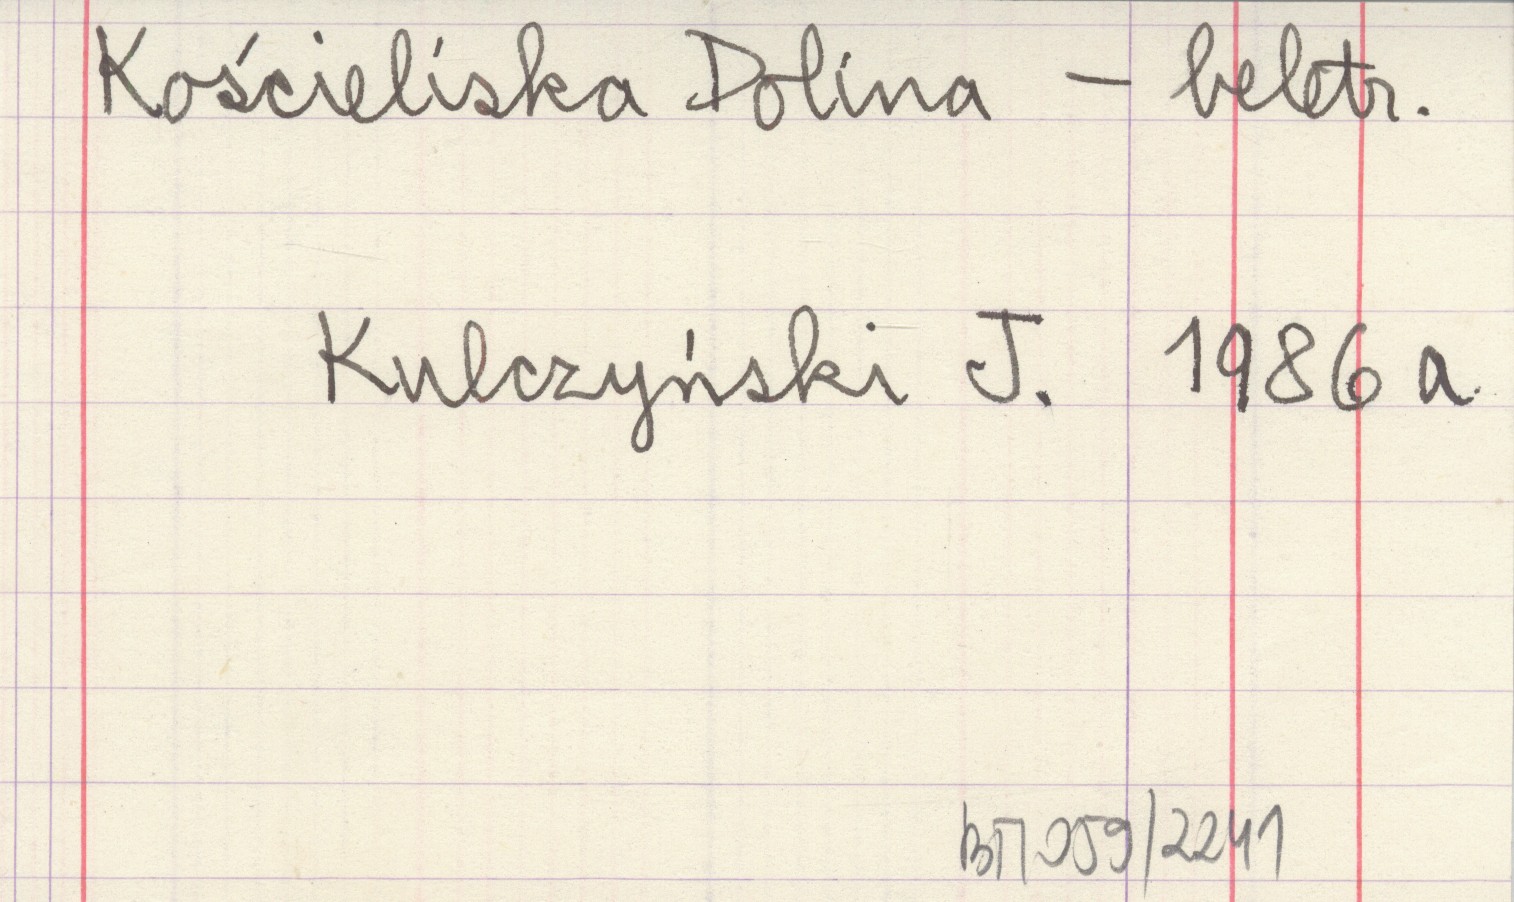 Kościeliska Dolina – beletr.
Kulczyński J. 1986 a.
059/2241